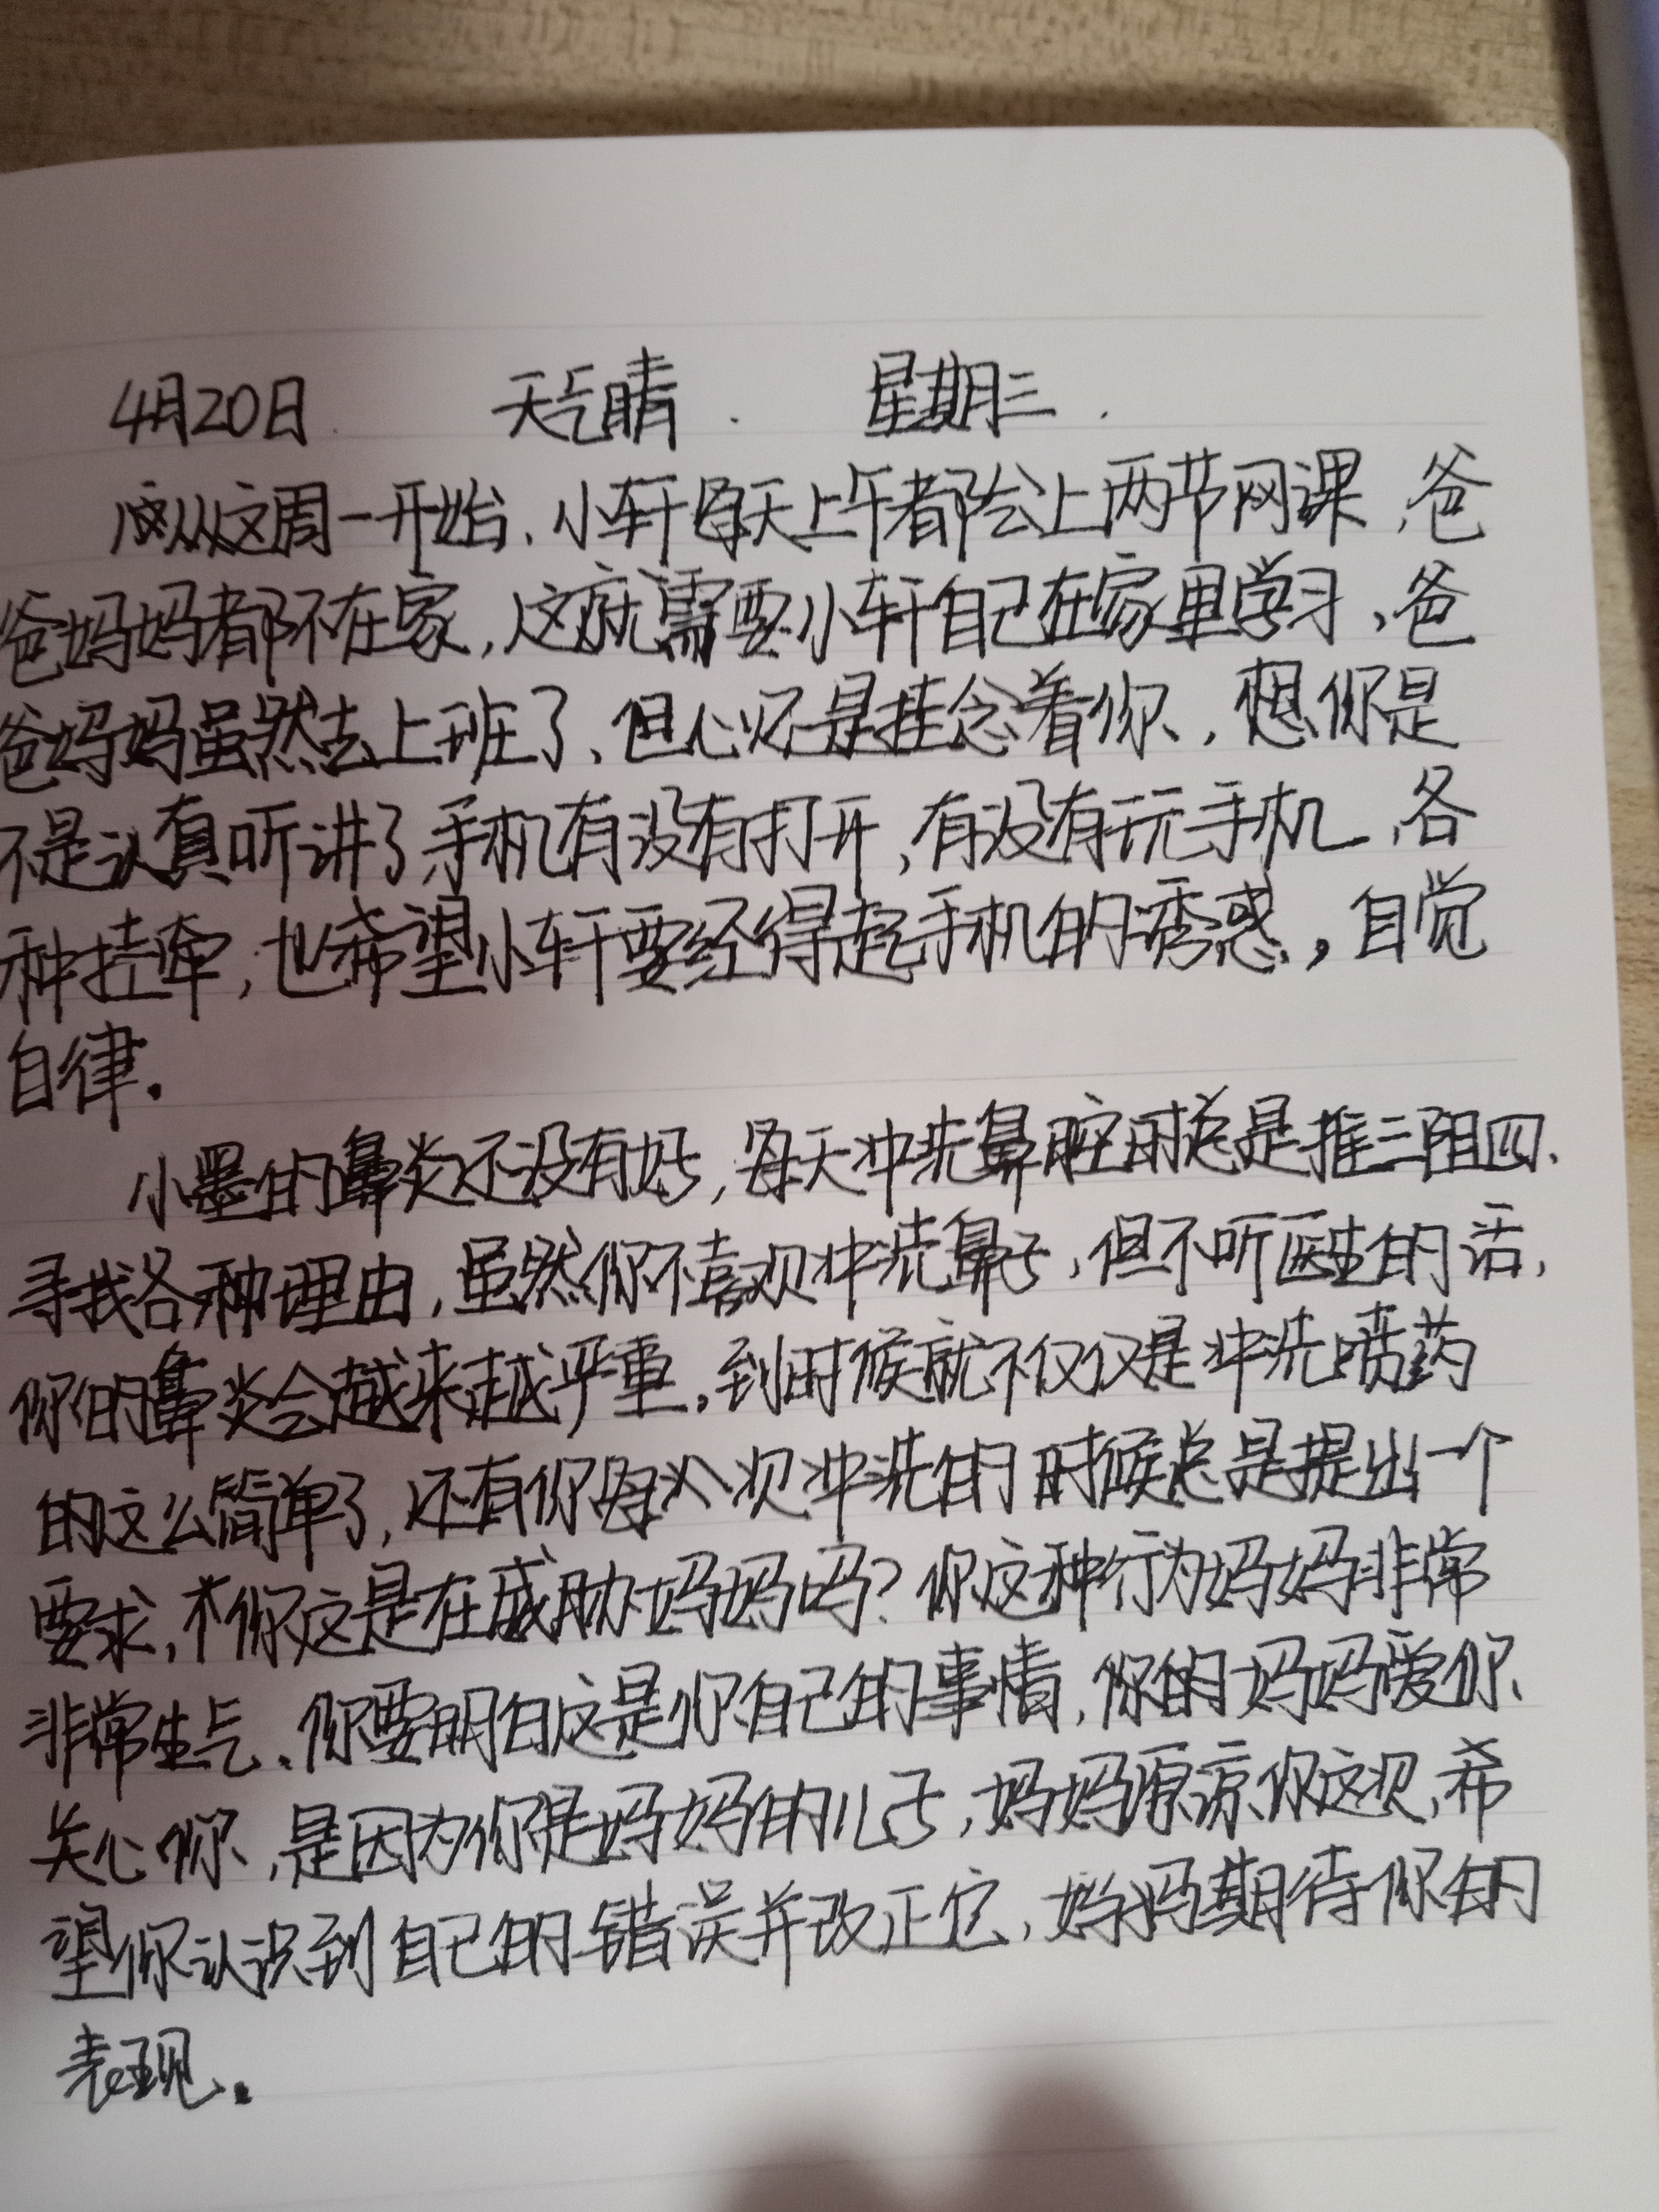 4月20日 天气晴. 星期三.
从这周一开始、小轩每天上午都会上两节网课,爸
爸妈妈都不在家,这就需要小轩自己在家里学习、爸
爸妈妈虽然去上班了、但心还是挂念着你,想你是
不是认真听讲了手机有没有打开,有没有玩手机,各
种挂牵,也希望小轩要经得起手机的诱惑,自觉
自律.
小墨的鼻炎还没有好,每天冲洗鼻腔时总是推三阻四、
寻找各种理由,虽然你不喜欢冲洗鼻子,但不听医生的话,
你的鼻炎会越来越严重。到时候就不仅仅是冲洗喷药
的这么简单了,还有你每次冲洗的时候总是提出一个
要求,你这是在威胁妈妈吗?你这种行为妈妈非常
非常生气、你要明白这是你自己的事情,你的妈妈爱你、
关心你,是因为你是妈妈的儿子,妈妈原谅你这次,希
望你认识到自己的错误并改正它,妈妈期待你的
表现。